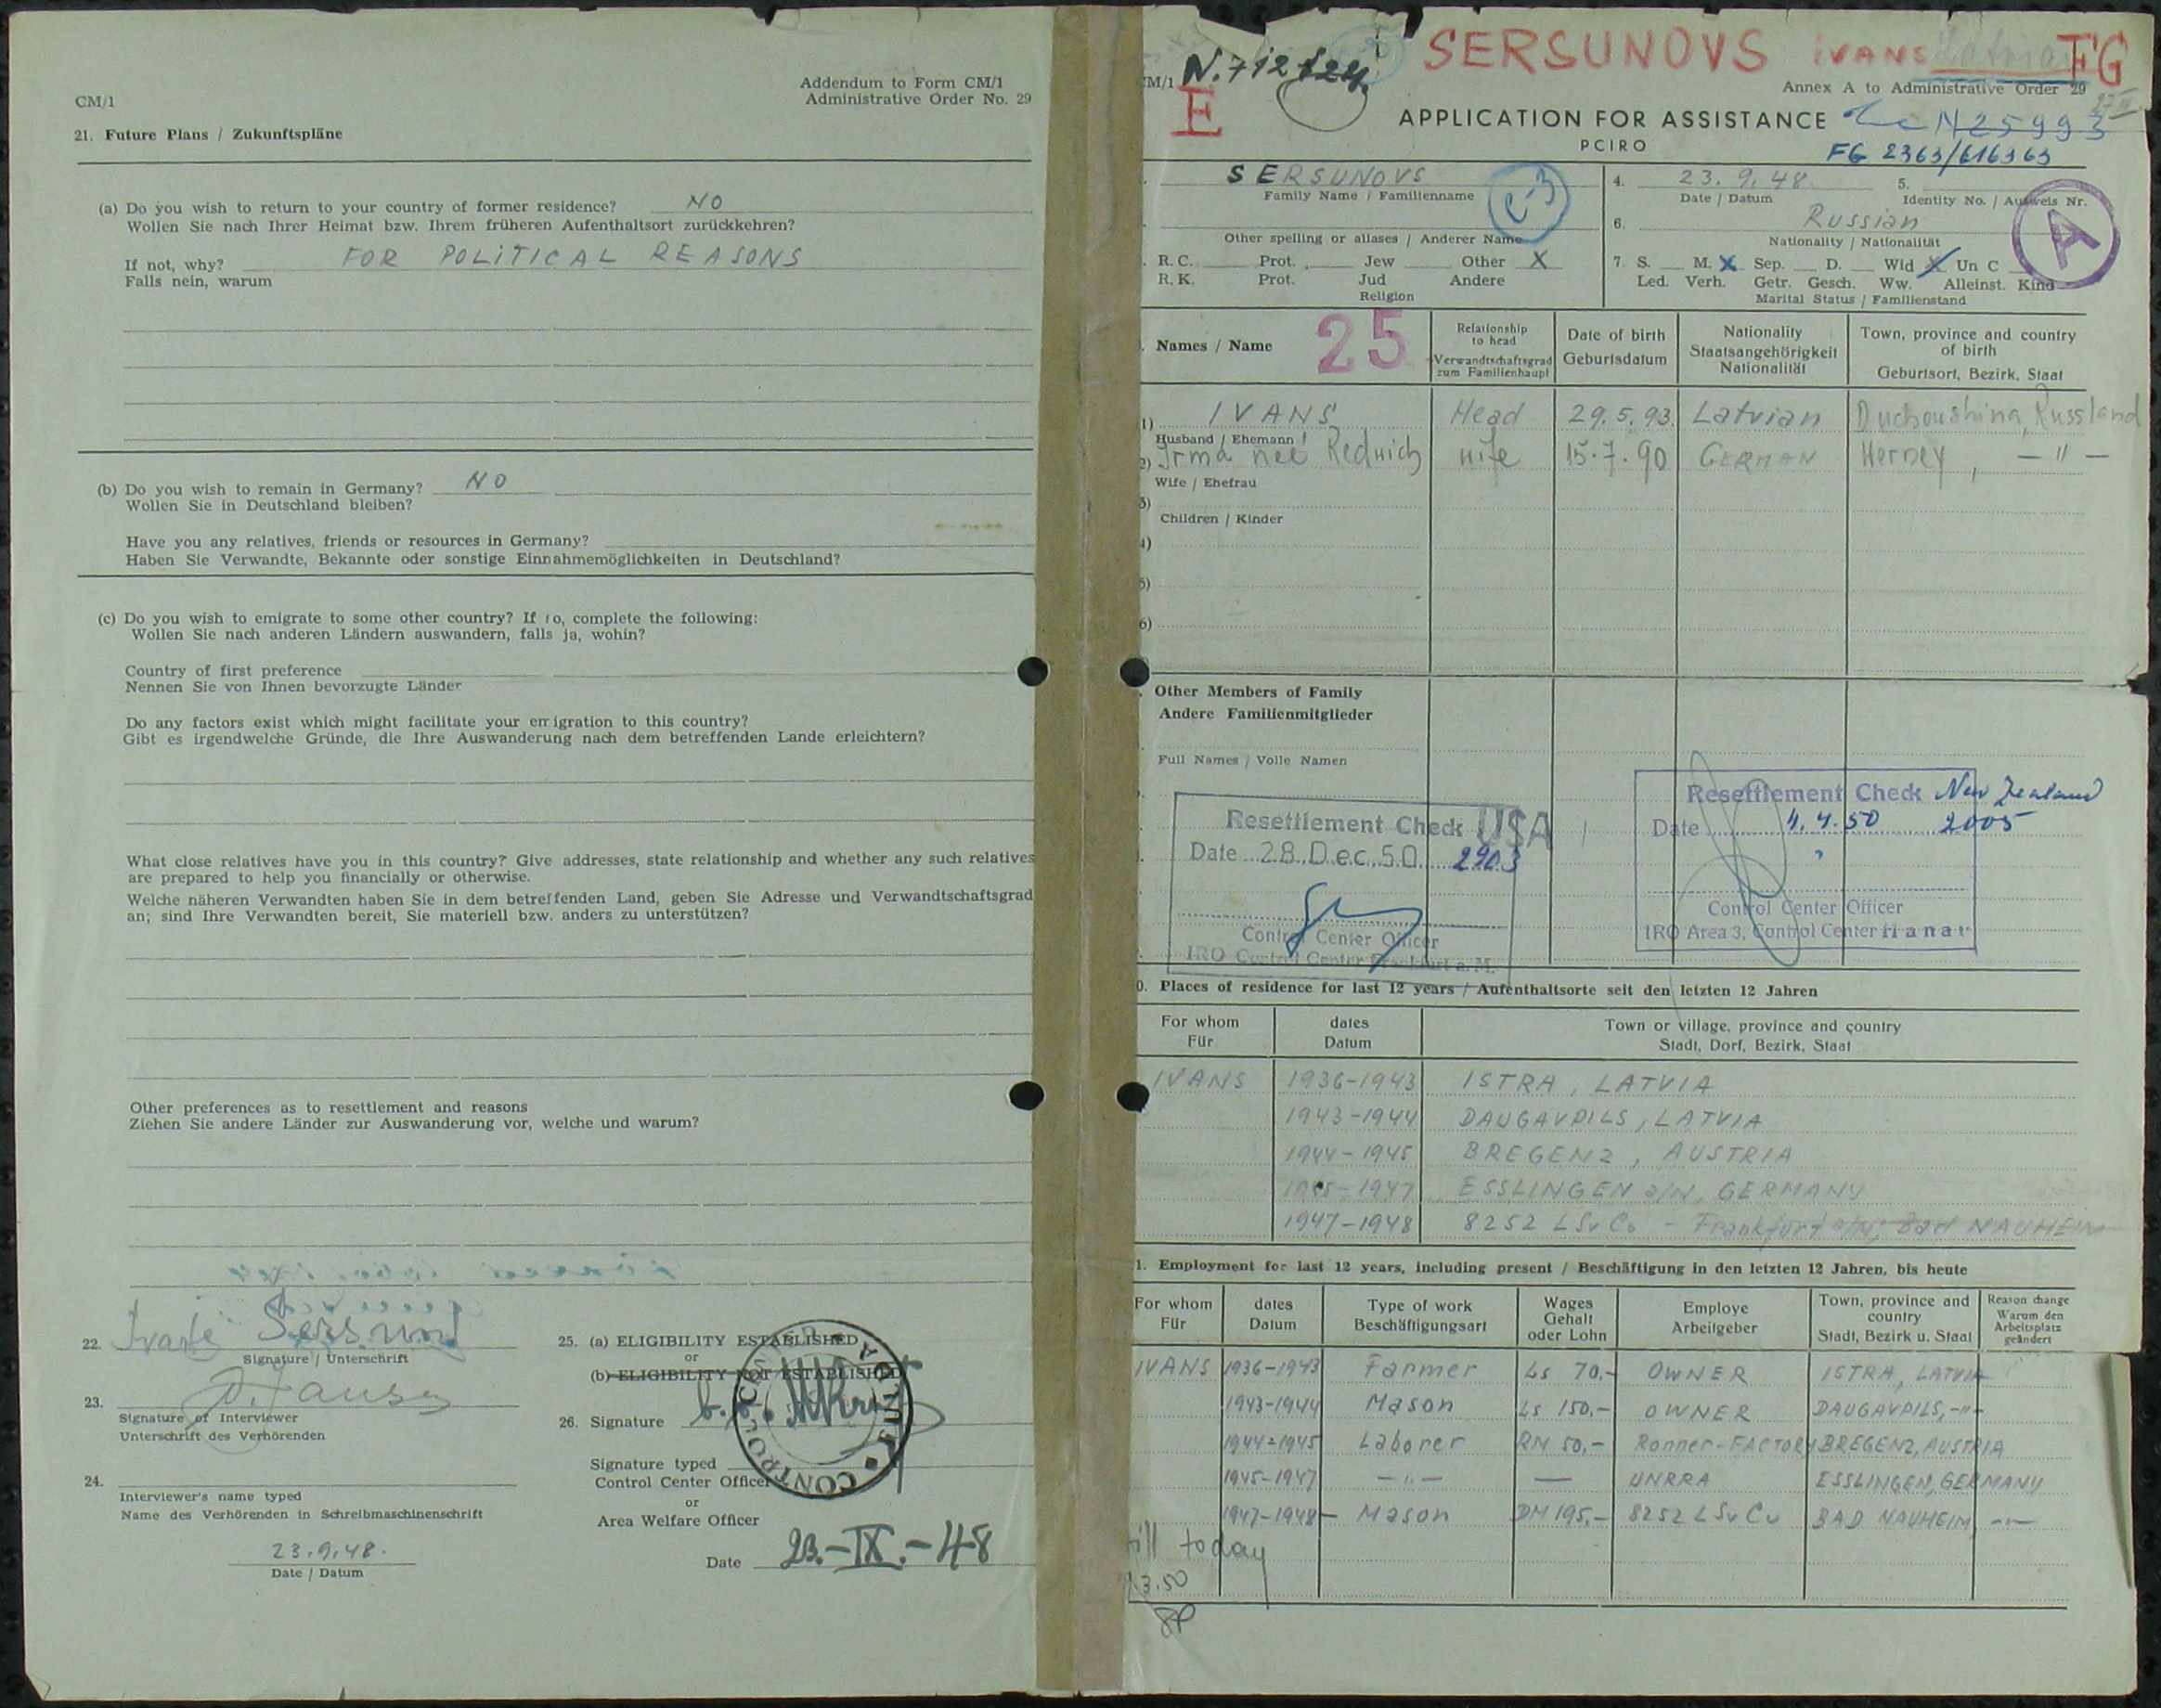 CM/1
Addendum to Form CM/1
Administrative Order No. 29
21. Future Plans / Zukunftspläne
(a) Do you wish to return to your country of former residence? NO
Wollen Sie nach Ihrer Heimat bzw. Ihrem früheren Aufenthaltsort zurückkehren?
If not, why? FOR POLITICAL REASONS
Falls nein, warum
(b) Do you wish to remain in Germany? NO
Wollen Sie in Deutschland bleiben?
Have you any relatives, friends or resources in Germany?
Haben Sie Verwandte, Bekannte oder sonstige Einnahmemöglichkeiten in Deutschland?
(c) Do you wish to emigrate to some other country? If so, complete the following:
Wollen Sie nach anderen Ländern auswandern, falls ja, wohin?
Country of first preference
Nennen Sie von Ihnen bevorzugte Länder
Do any factors exist which might facilitate your emigration to this country?
Gibt es irgendwelche Gründe, die Ihre Auswanderung nach dem betreffenden Lande erleichtern?
What close relatives have you in this country? Give addresses, state relationship and whether any such relatives
are prepared to help you financially or otherwise.
Welche näheren Verwandten haben Sie in dem betreffenden Land, geben Sie Adresse und Verwandtschaftsgrad
an; sind Ihre Verwandten bereit, Sie materiell bzw. anders zu unterstützen?
Other preferences as to resettlement and reasons
Ziehen Sie andere Länder zur Auswanderung vor, welche und warum?
22.
Signature / Unterschrift
23.
Signature of Interviewer
Unterschrift des Verhörenden
24.
Interviewer's name typed
Name des Verhörenden in Schreibmaschinenschrift
23.9.48.
Date / Datum
25. (a) ELIGIBILITY ESTABLISHED
or
(b) ELIGIBILITY NOT ESTABLISHED
26. Signature
Signature typed
Control Center Officer
or
Area Welfare Officer
Date 23.-IX.-48
CM/1 N.712124 SERSUNOVS IVANS Latvian FG
E
Annex A to Administrative Order 29
APPLICATION FOR ASSISTANCE N25993
PCIRO
FG 2363/616363
SERSUNOVS
Family Name / Familienname
C-3
4. 23.9.48.
Date / Datum
5.
Identity No. / Ausweis Nr.
Other spelling or aliases / Anderer Name
6. Russian
Nationality / Nationalität
A
R. C. Prot. Jew Other X
R. K. Prot. Jud Andere
Religion
7. S. M. X Sep. D. Wid X Un C
Led. Verh. Getr. Gesch. Ww. Alleinst. Kind
Marital Status / Familienstand
Names / Name 25
Relationship to head
Verwandtschaftsgrad zum Familienhaupt
Date of birth
Geburtsdatum
Nationality
Staatsangehörigkeit
Nationalität
Town, province and country of birth
Geburtsort, Bezirk, Staat
1) IVANS Head 29.5.93. Latvian Duchoushina, Russland
Husband / Ehemann
2) Irma nee Rednich wife 15.7.90 GERMAN Herney, — " —
Wife / Ehefrau
3)
Children / Kinder
4)
5)
6)
Other Members of Family
Andere Familienmitglieder
Full Names / Volle Namen
Resettlement Check USA
Date 28. Dec. 50 2903
Control Center Officer
IRO Control Center Frankfurt a. M.
Resettlement Check New Zealand
Date 4.4.50 2005
Control Center Officer
IRO Area 3, Control Center Hanau
0. Places of residence for last 12 years / Aufenthaltsorte seit den letzten 12 Jahren
For whom
Für
dates
Datum
Town or village, province and country
Stadt, Dorf, Bezirk, Staat
IVANS 1936-1943 ISTRA, LATVIA
1943-1944 DAUGAVPILS, LATVIA
1944-1945 BREGENZ, AUSTRIA
1945-1947 ESSLINGEN a/N, GERMANY
1947-1948 8252 LSv Co - Frankfurt a/M, Bad NAUHEIM
1. Employment for last 12 years, including present / Beschäftigung in den letzten 12 Jahren, bis heute
For whom
Für
dates
Datum
Type of work
Beschäftigungsart
Wages
Gehalt
oder Lohn
Employe
Arbeitgeber
Town, province and country
Stadt, Bezirk u. Staat
Reason change
Warum den
Arbeitsplatz
geändert
IVANS 1936-1943 Farmer Ls 70.- OWNER ISTRA, LATVIA
1943-1944 Mason Ls 150,- OWNER DAUGAVPILS, -"-
1944-1945 Laborer RM 50,- Ronner-FACTORY BREGENZ, AUSTRIA
1945-1947 — " — — UNRRA ESSLINGEN, GERMANY
1947-1948- Mason DM 195,- 8252 LSv Co BAD NAUHEIM, -"-
till today
3.50